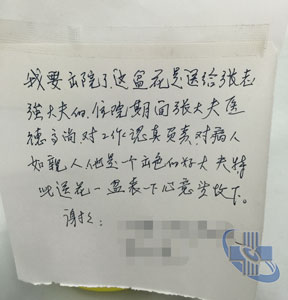 我要出院了这盆花是送给张志
强大夫的,住院期间张大夫医
德高尚,对工作认真负责,对病人
如亲人他是一个出色的好大夫特
此送花一盆表一下心意望收下。
谢谢: